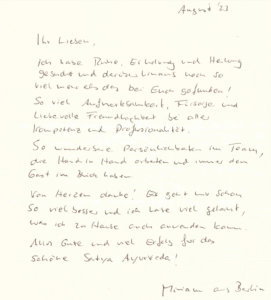 August '23
Ihr Lieben,
ich habe Ruhe, Erholung und Heilung
gesucht und darüber hinaus noch so
viel mehr als das bei Euch gefunden!
So viel Aufmerksamkeit, Fürsorge und
liebevolle Freundlichkeit bei aller
Kompetenz und Professionalität.
So wunderbare Persönlichkeiten im Team,
die Hand in Hand arbeiten und immer den
Gast im Blick haben.
Von Herzen danke! Es geht mir schon
so viel besser und ich habe viel gelernt,
was ich zu Hause auch anwenden kann.
Alles Gute und viel Erfolg für das
schöne Satya Ayurveda!
Miriam aus Berlin